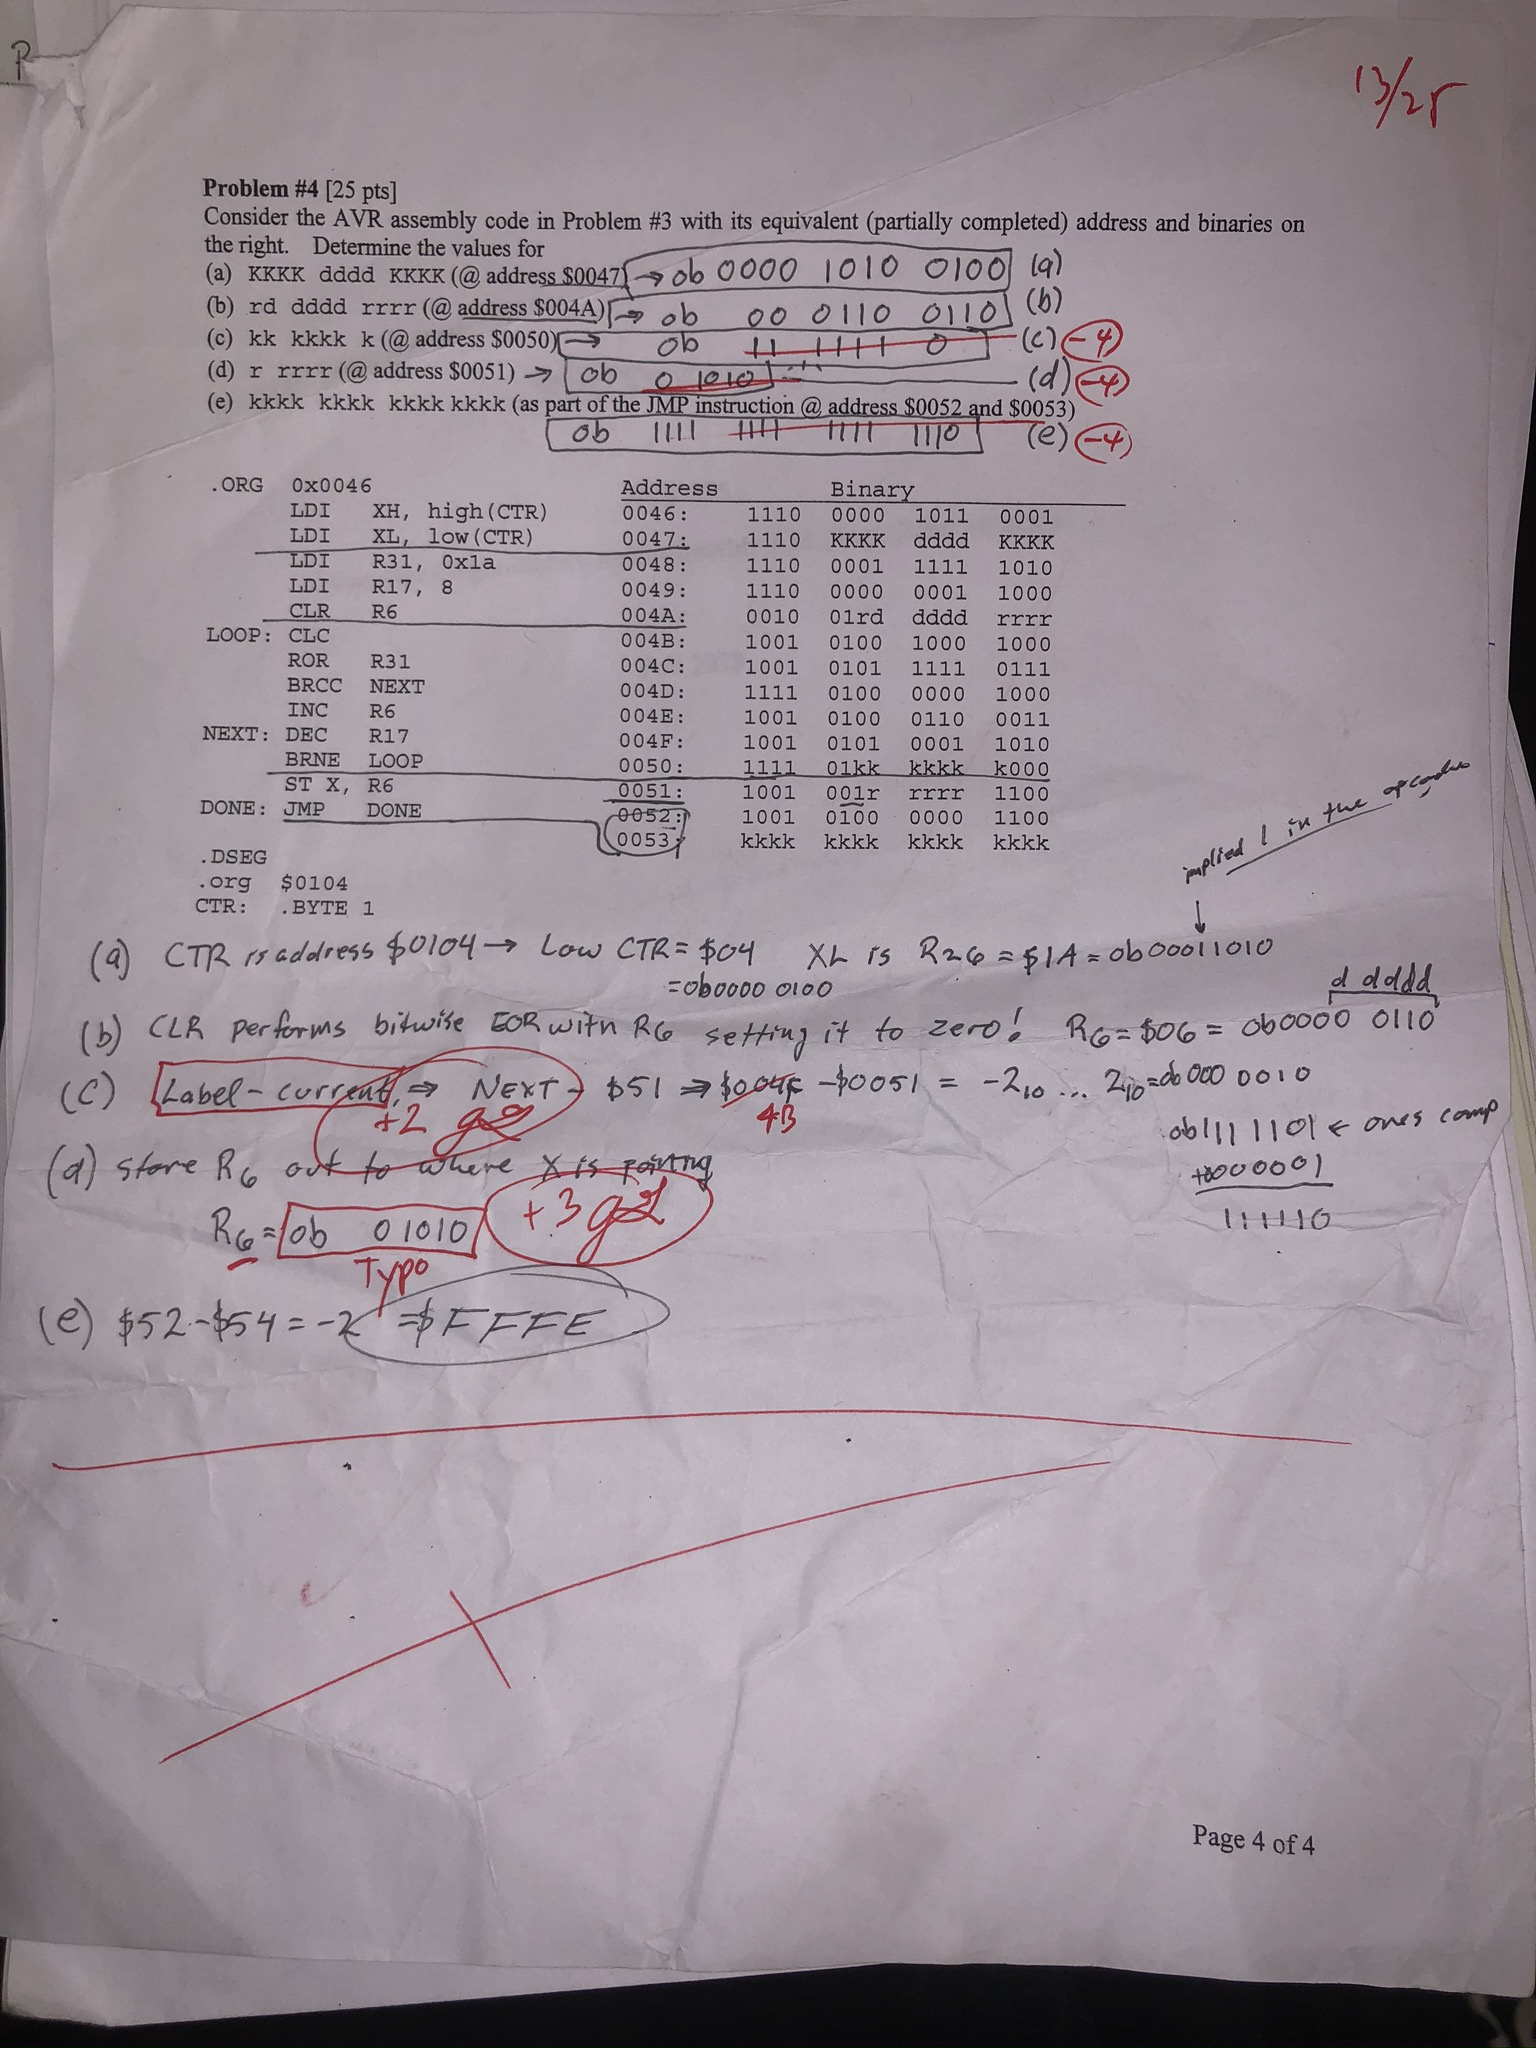 P
13/25
Problem #4 [25 pts]
Consider the AVR assembly code in Problem #3 with its equivalent (partially completed) address and binaries on
the right. Determine the values for
(a) KKKK dddd KKKK (@ address $0047) → 0b 0000 1010 0100 (a)
(b) rd dddd rrrr (@ address $004A) → 0b 00 0110 0110 (b)
(c) kk kkkk k (@ address $0050) → 0b 11 1111 0 (c) -4
(d) r rrrr (@ address $0051) → 0b 0 1010 (d) -4
(e) kkkk kkkk kkkk kkkk (as part of the JMP instruction @ address $0052 and $0053)
0b 1111 1111 1111 1110 (e) -4
.ORG 0x0046 Address Binary
LDI XH, high(CTR) 0046: 1110 0000 1011 0001
LDI XL, low(CTR) 0047: 1110 KKKK dddd KKKK
LDI R31, 0x1a 0048: 1110 0001 1111 1010
LDI R17, 8 0049: 1110 0000 0001 1000
CLR R6 004A: 0010 01rd dddd rrrr
LOOP: CLC 004B: 1001 0100 1000 1000
ROR R31 004C: 1001 0101 1111 0111
BRCC NEXT 004D: 1111 0100 0000 1000
INC R6 004E: 1001 0100 0110 0011
NEXT: DEC R17 004F: 1001 0101 0001 1010
BRNE LOOP 0050: 1111 01kk kkkk k000
ST X, R6 0051: 1001 001r rrrr 1100
DONE: JMP DONE 0052: 1001 0100 0000 1100
0053: kkkk kkkk kkkk kkkk
.DSEG
.org $0104
CTR: .BYTE 1
implied 1 in the opcodes
(a) CTR is address $0104 → Low CTR = $04 XL is R26 = $1A = 0b00011010
=0b0000 0100
d dddd
(b) CLR performs bitwise EOR with R6 setting it to zero! R6 = $06 = 0b0000 0110
(c) Label - current, ⇒ NEXT - $51 ⇒ $004F - $0051 = -2₁₀ ... 2₁₀ = 0b000 0010
+2 4B
0b111 1101 ← ones comp
+000001
111110
(d) Store R6 out to where X is pointing
R6 = 0b 01010 +3
Typo
(e) $52 - $54 = -2 = $FFFE
Page 4 of 4